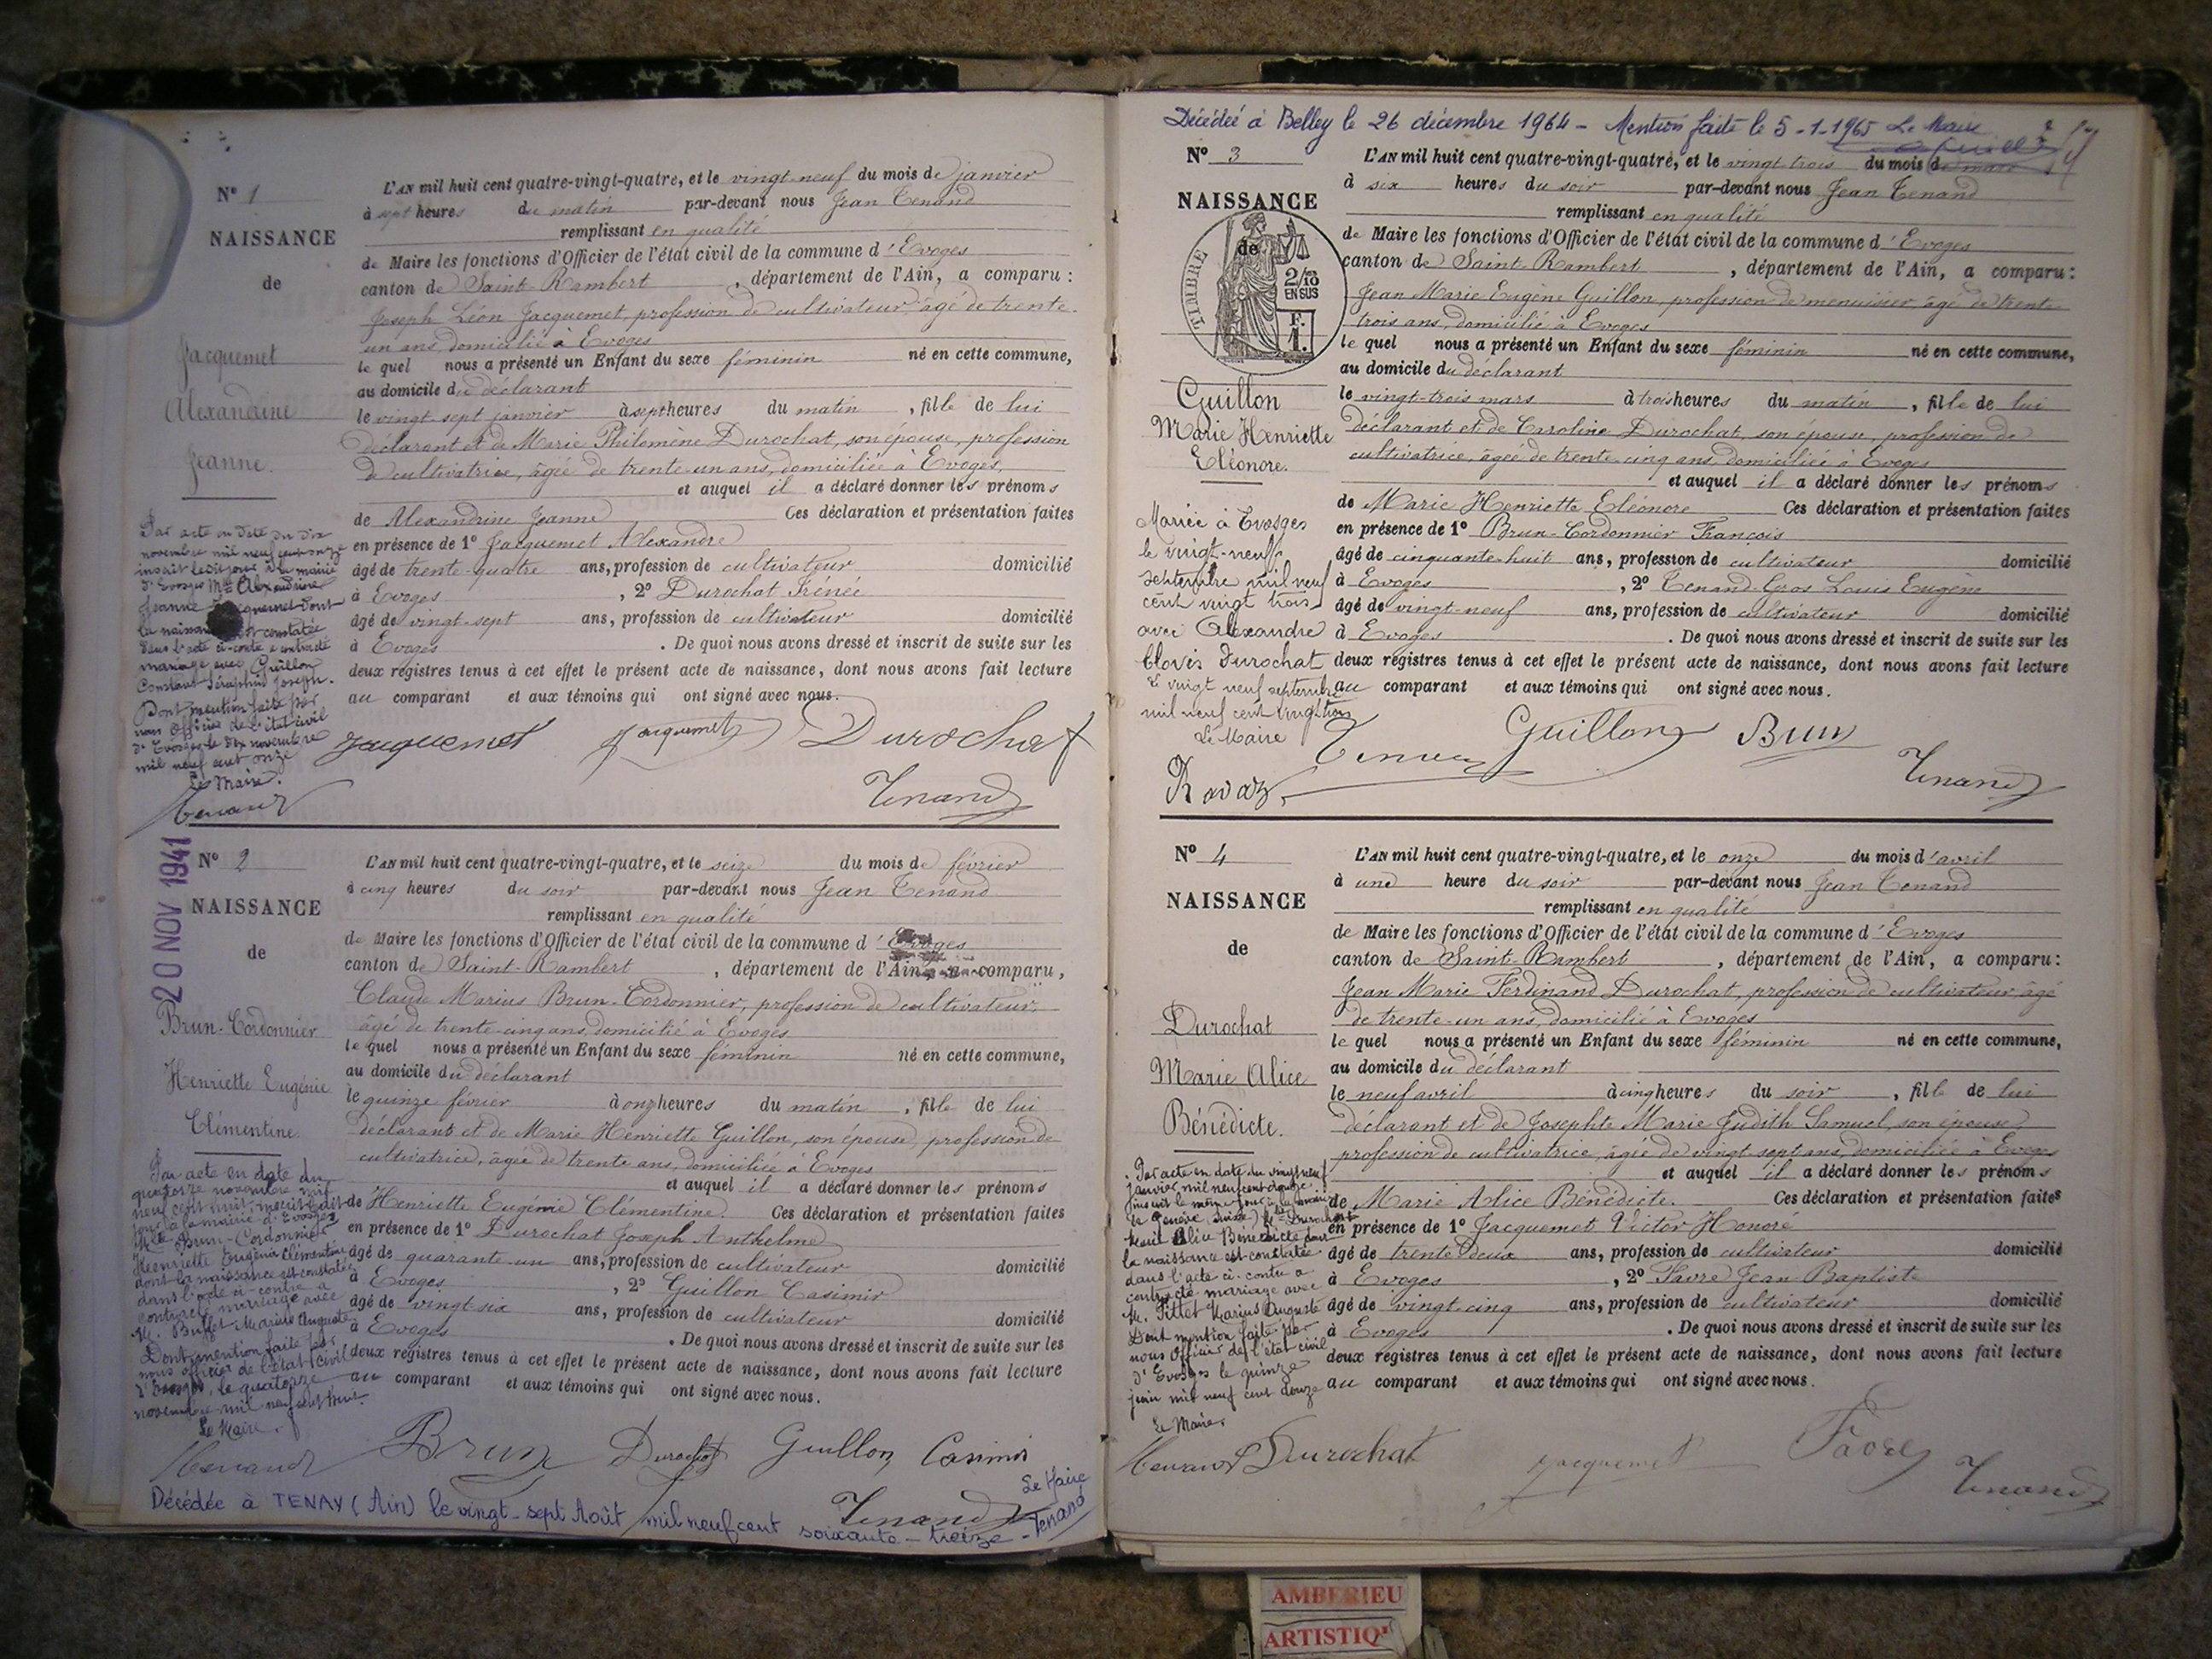 N° 1
NAISSANCE
de
Jacquemet
Alexandrine
Jeanne.
L'AN mil huit cent quatre-vingt-quatre, et le vingt-neuf du mois de janvier
à sept heures du matin par-devant nous Jean Tenand
remplissant en qualité
de Maire les fonctions d'Officier de l'état civil de la commune d'Evoges
canton de Saint-Rambert, département de l'Ain, a comparu :
Joseph Léon Jacquemet, profession de cultivateur, âgé de trente-
un ans, domicilié à Evoges
le quel nous a présenté un Enfant du sexe féminin né en cette commune,
au domicile du déclarant
le vingt-sept janvier à sept heures du matin, fille de lui
déclarant et de Marie Philomène Durochat, son épouse, profession
de cultivatrice, âgée de trente-un ans, domiciliée à Evoges,
et auquel il a déclaré donner les prénoms
de Alexandrine Jeanne Ces déclaration et présentation faites
en présence de 1° Jacquemet Alexandre
âgé de trente-quatre ans, profession de cultivateur domicilié
à Evoges, 2° Durochat Irénée
âgé de vingt-sept ans, profession de cultivateur domicilié
à Evoges. De quoi nous avons dressé et inscrit de suite sur les
deux registres tenus à cet effet le présent acte de naissance, dont nous avons fait lecture
au comparant et aux témoins qui ont signé avec nous.
Par acte en date du dix
novembre mil neuf cent onze
inscrit le dit jour à la mairie
d'Evosges Mlle Alexandrine
Jeanne Jacquemet dont
la naissance est constatée
dans l'acte ci-contre a contracté
mariage avec Guillon
Constant Séraphin Joseph.
Dont mention faite par
nous Officier de l'état civil
d'Evosges le dix novembre
mil neuf cent onze
Le Maire.
Tenand
Jacquemet Jacquemet Durochat
Tenand
20 NOV 1941
N° 2
NAISSANCE
de
Brun-Cordonnier
Henriette Eugénie
Clémentine
L'AN mil huit cent quatre-vingt-quatre, et le seize du mois de février
à cinq heures du soir par-devant nous Jean Tenand
remplissant en qualité
de Maire les fonctions d'Officier de l'état civil de la commune d'Evoges
canton de Saint-Rambert, département de l'Ain, a comparu,
Claude Marius Brun-Cordonnier, profession de cultivateur,
âgé de trente-cinq ans, domicilié à Evoges
le quel nous a présenté un Enfant du sexe féminin né en cette commune,
au domicile du déclarant
le quinze février à onze heures du matin, fille de lui
déclarant et de Marie Henriette Guillon, son épouse, profession de
cultivatrice, âgée de trente ans, domiciliée à Evoges
et auquel il a déclaré donner les prénoms
de Henriette Eugénie Clémentine. Ces déclaration et présentation faites
en présence de 1° Durochat Joseph Anthelme
âgé de quarante-un ans, profession de cultivateur domicilié
à Evoges, 2° Guillon Casimir
âgé de vingt-six ans, profession de cultivateur domicilié
à Evoges. De quoi nous avons dressé et inscrit de suite sur les
deux registres tenus à cet effet le présent acte de naissance, dont nous avons fait lecture
au comparant et aux témoins qui ont signé avec nous.
Par acte en date du
quatorze novembre mil
neuf cent huit, inscrit ledit
jour à la mairie d'Evosges
Mlle Brun-Cordonnier
Henriette Eugénie Clémentine
dont la naissance est constatée
dans l'acte ci-contre a
contracté mariage avec
M. Buffet Marius Auguste
Dont mention faite par
nous officier de l'état civil
d'Evosges, le quatorze
novembre mil neuf cent huit.
Le Maire.
Tenand Brun Durochat Guillon Casimir
Tenand
Décédée à TENAY (Ain) le vingt-sept Août mil neuf cent soixante-treize - Le Maire
Tenand
Décédée à Belley le 26 décembre 1964 - Mention faite le 5-1-1965 Le Maire
N° 3
NAISSANCE
de
TIMBRE
2/10
EN SUS
F.
1.
Guillon
Marie Henriette
Eléonore.
L'AN mil huit cent quatre-vingt-quatre, et le vingt-trois du mois de mars
à six heures du soir par-devant nous Jean Tenand
remplissant en qualité
de Maire les fonctions d'Officier de l'état civil de la commune d'Evoges
canton de Saint-Rambert, département de l'Ain, a comparu :
Jean Marie Eugène Guillon, profession de menuisier, âgé de trente-
trois ans, domicilié à Evoges
le quel nous a présenté un Enfant du sexe féminin né en cette commune,
au domicile du déclarant
le vingt-trois mars à trois heures du matin, fille de lui
déclarant et de Caroline Durochat, son épouse, profession de
cultivatrice, âgée de trente-cinq ans, domiciliée à Evoges
et auquel il a déclaré donner les prénoms
de Marie Henriette Eléonore Ces déclaration et présentation faites
en présence de 1° Brun-Cordonnier François
âgé de cinquante-huit ans, profession de cultivateur domicilié
à Evoges, 2° Tenand-Gros Louis Eugène
âgé de vingt-neuf ans, profession de cultivateur domicilié
à Evoges. De quoi nous avons dressé et inscrit de suite sur les
deux registres tenus à cet effet le présent acte de naissance, dont nous avons fait lecture
au comparant et aux témoins qui ont signé avec nous.
Mariée à Evosges
le vingt-neuf
septembre mil neuf
cent vingt trois
avec Alexandre
Clovis Durochat
Le vingt neuf septembre
mil neuf cent vingt trois
Le Maire
Ravaz
Tenand Guillon Brun
Tenand
N° 4
NAISSANCE
de
Durochat
Marie Alice
Bénédicte.
L'AN mil huit cent quatre-vingt-quatre, et le onze du mois d'avril
à une heure du soir par-devant nous Jean Tenand
remplissant en qualité
de Maire les fonctions d'Officier de l'état civil de la commune d'Evoges
canton de Saint-Rambert, département de l'Ain, a comparu :
Jean Marie Ferdinand Durochat, profession de cultivateur, âgé
de trente-un ans, domicilié à Evoges
le quel nous a présenté un Enfant du sexe féminin né en cette commune,
au domicile du déclarant
le neuf avril à cinq heures du soir, fille de lui
déclarant et de Josephte Marie Judith Samuel, son épouse
profession de cultivatrice, âgée de vingt-sept ans, domiciliée à Evoges
et auquel il a déclaré donner les prénoms
de Marie Alice Bénédicte. Ces déclaration et présentation faites
en présence de 1° Jacquemet Victor Honoré
âgé de trente-deux ans, profession de cultivateur domicilié
à Evoges, 2° Favre Jean Baptiste
âgé de vingt-cinq ans, profession de cultivateur domicilié
à Evoges. De quoi nous avons dressé et inscrit de suite sur les
deux registres tenus à cet effet le présent acte de naissance, dont nous avons fait lecture
au comparant et aux témoins qui ont signé avec nous.
Par acte en date du vingt neuf
janvier mil neuf cent douze
inscrit le même jour à la mairie
de Genève (Suisse) Durochat
Marie Alice Bénédicte dont
la naissance est constatée
dans l'acte ci-contre a
contracté mariage avec
M. Pittet Marius Auguste
Dont mention faite par
nous Officier de l'état civil
d'Evosges le quinze
juin mil neuf cent douze
Le Maire.
Tenand Durochat Jacquemet Favre
Tenand
AMBERIEU
ARTISTIQ